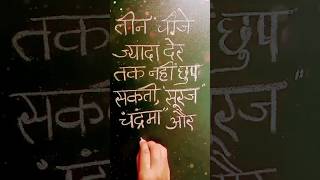 तीन चीजे
ज्यादा देर
तक नहीं छुप
सकती, "सूरज"
"चंद्रमा" और